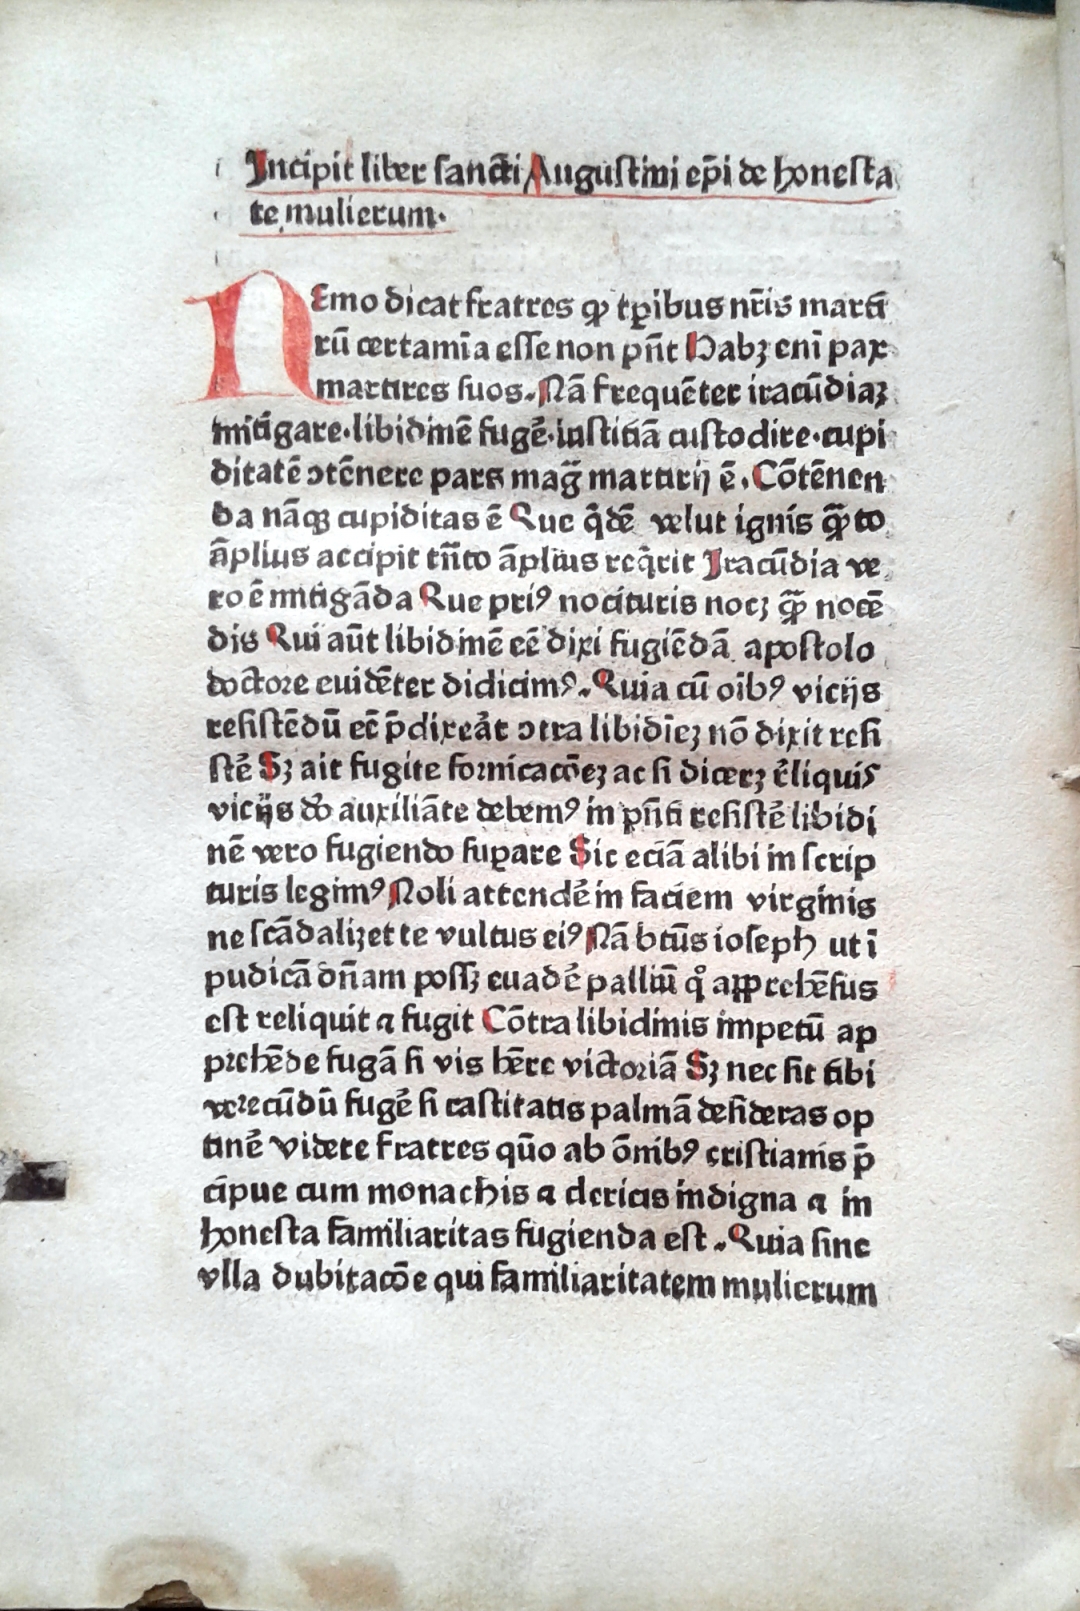 Incipit liber sancti Augustini ep̄i de honesta
te mulierum.
NEmo dicat fratres ꝙ tp̱ibus nr̄is marti
rū certamīa esse non pn̄t Habꝫ enī pax
martires suos. Nā frequēter iracūdiaꝫ
mitigare·libidinē fugẽ·iusticiā custodire·cupi
ditatē ↄtēnere pars mag̃ martirij ē. Cōtēnen
da nāqꝫ cupiditas ē Que q̄dē velut ignis q̄ꝫto
āplius accipit tn̄to āplius req̄rit Iracūdia ve
ro ē mitigāda Que priꝰ nocituris nocꝫ q̄ꝫ nocē
dis Qui aūt libidinē eē dixi fugiēdā apostolo
doctore euidēter didicimꝰ. Quia cū oībꝰ vicijs
resistēdū eē p̄dixeāt ↄtra libidīeꝫ nō dixit resi
stē Sꝫ ait fugite fornicacōeꝫ ac si dicerꝫ r̄liquis
vicijs do auxiliāte debemꝰ in pn̄ti resistē libidi
nē vero fugiendo suꝑare Sic eciā alibi in scrip
turis legimꝰ Noli attendē in faciem virginis
ne scādalizet te vultus eiꝰ Nā btūs ioseph ut ī
pudicā dn̄am possꝫ euadē palliū q̊ apprehēsus
est reliquit ⁊ fugit Cōtra libidinis impetū ap
prehēde fugā si vis hēre victoriā Sꝫ nec sit tibi
verecūdū fugē si castitatis palmā desideras op
tinē videte fratres quō ab ōnibꝰ cristianis p̄
cipue cum monachis ⁊ clericis indigna ⁊ in
honesta familiaritas fugienda est. Quia sine
vlla dubitacōe qui familiaritatem mulierum